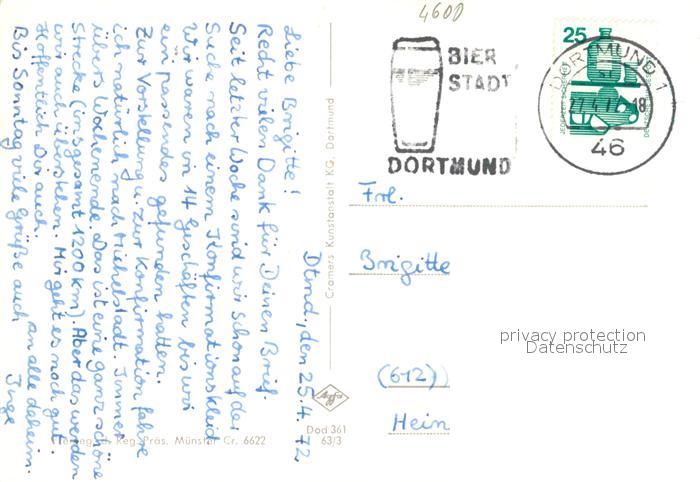 4600
BIER
STADT
DORTMUND
25
DORTMUND 1
27.4.72-18
46
Dtmd., den 25.4.72
Liebe Brigitte!
Recht vielen Dank für Deinen Brief.
Seit letzter Woche sind wir schon auf der
Suche nach einem Konfirmationskleid
Wir waren in 14 Geschäften bis wir
ein passendes gefunden hatten.
Zur Vorstellung u. zur Konfirmation fahre
ich natürlich nach Michelstadt. Immer
übers Wochenende. Das ist eine ganz schöne
Strecke (insgesamt 1200 km). Aber das werden
wir auch überstehen. Mir geht es noch gut.
Hoffentlich Dir auch.
Bis Sonntag viele Grüße auch an alle daheim.
Inge
Cramers Kunstanstalt KG, Dortmund
Frl.
Brigitte
(612)
Heim
privacy protection
Datenschutz
Agfa
Dod 361
63/3
Reg. Präs. Münster Cr. 6622